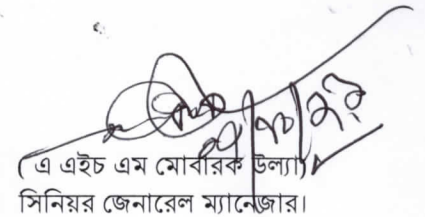 ( এ এইচ এম মোবারক উল্যা )
সিনিয়র জেনারেল ম্যানেজার।